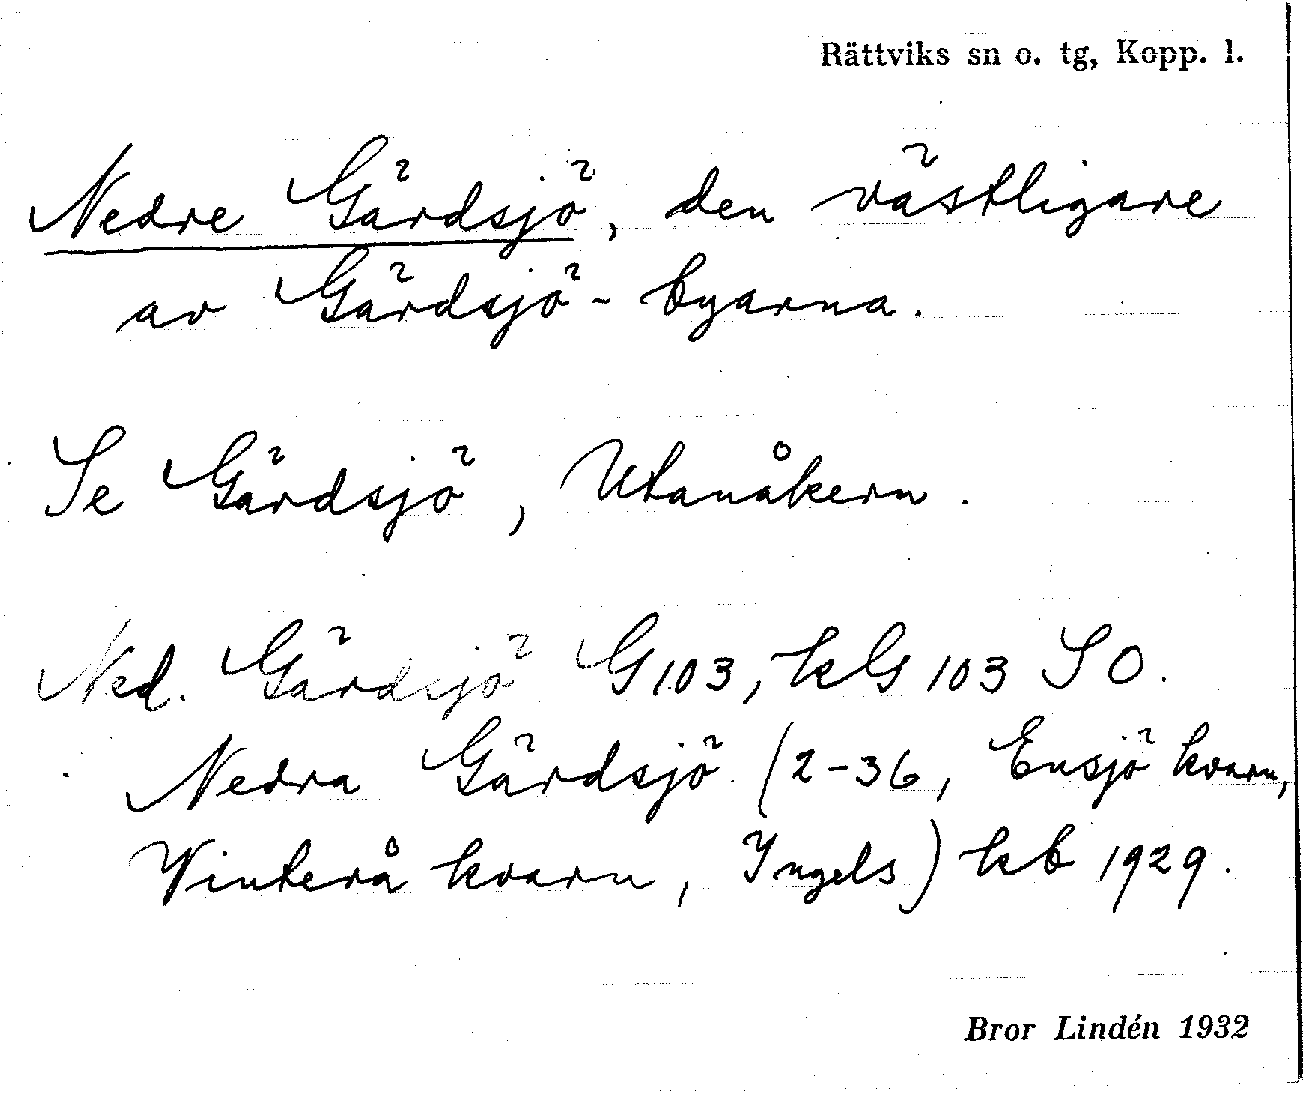 Rättviks sn o. tg, Kopp. l.
Nedre Gärdsjö, den västligare
av Gärdsjö-byarna.
Se Gärdsjö, Utanåkern.
Ned. Gärdsjö G 103, kG 103 SO.
Nedra Gärdsjö (2-36, Ensjö kvarn,
Vinterå kvarn, Ingels) kb 1929.
Bror Lindén 1932